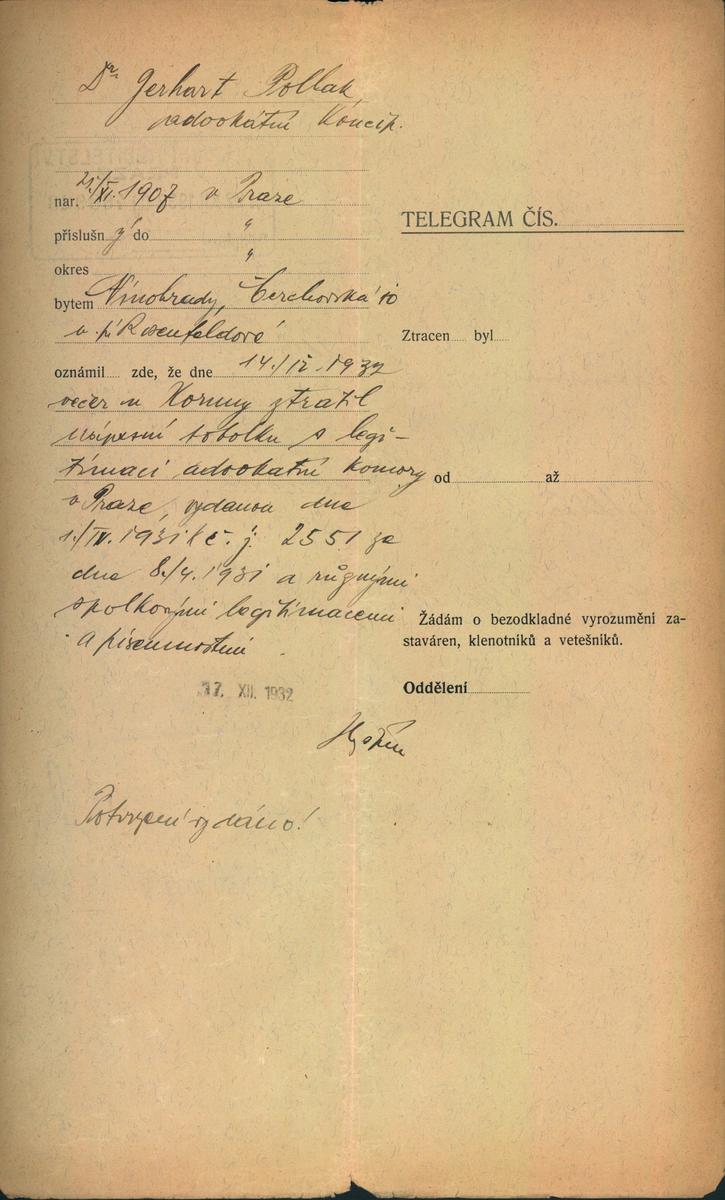 Dr. Gerhart Pollak
advokátní koncip.
nar. 21./XI. 1907 v Praze
příslušný do "
okres "
bytem Vinohrady, Čerchovská 10
u pí Rosenfeldové
oznámil zde, že dne 14./12. 1932
večer u Koruny ztratil
náprsní tobolku s legi-
timací advokátní komory
v Praze, vydanou dne
1./IV. 1931 č. j. 2551 ze
dne 8./4. 1931 a různými
spolkovými legitimacemi
a písemnostmi
17. XII. 1932
Potvrzení vydáno!
TELEGRAM ČÍS.
Ztracen byl
od až
Žádám o bezodkladné vyrozumění za-
staváren, klenotníků a vetešníků.
Oddělení